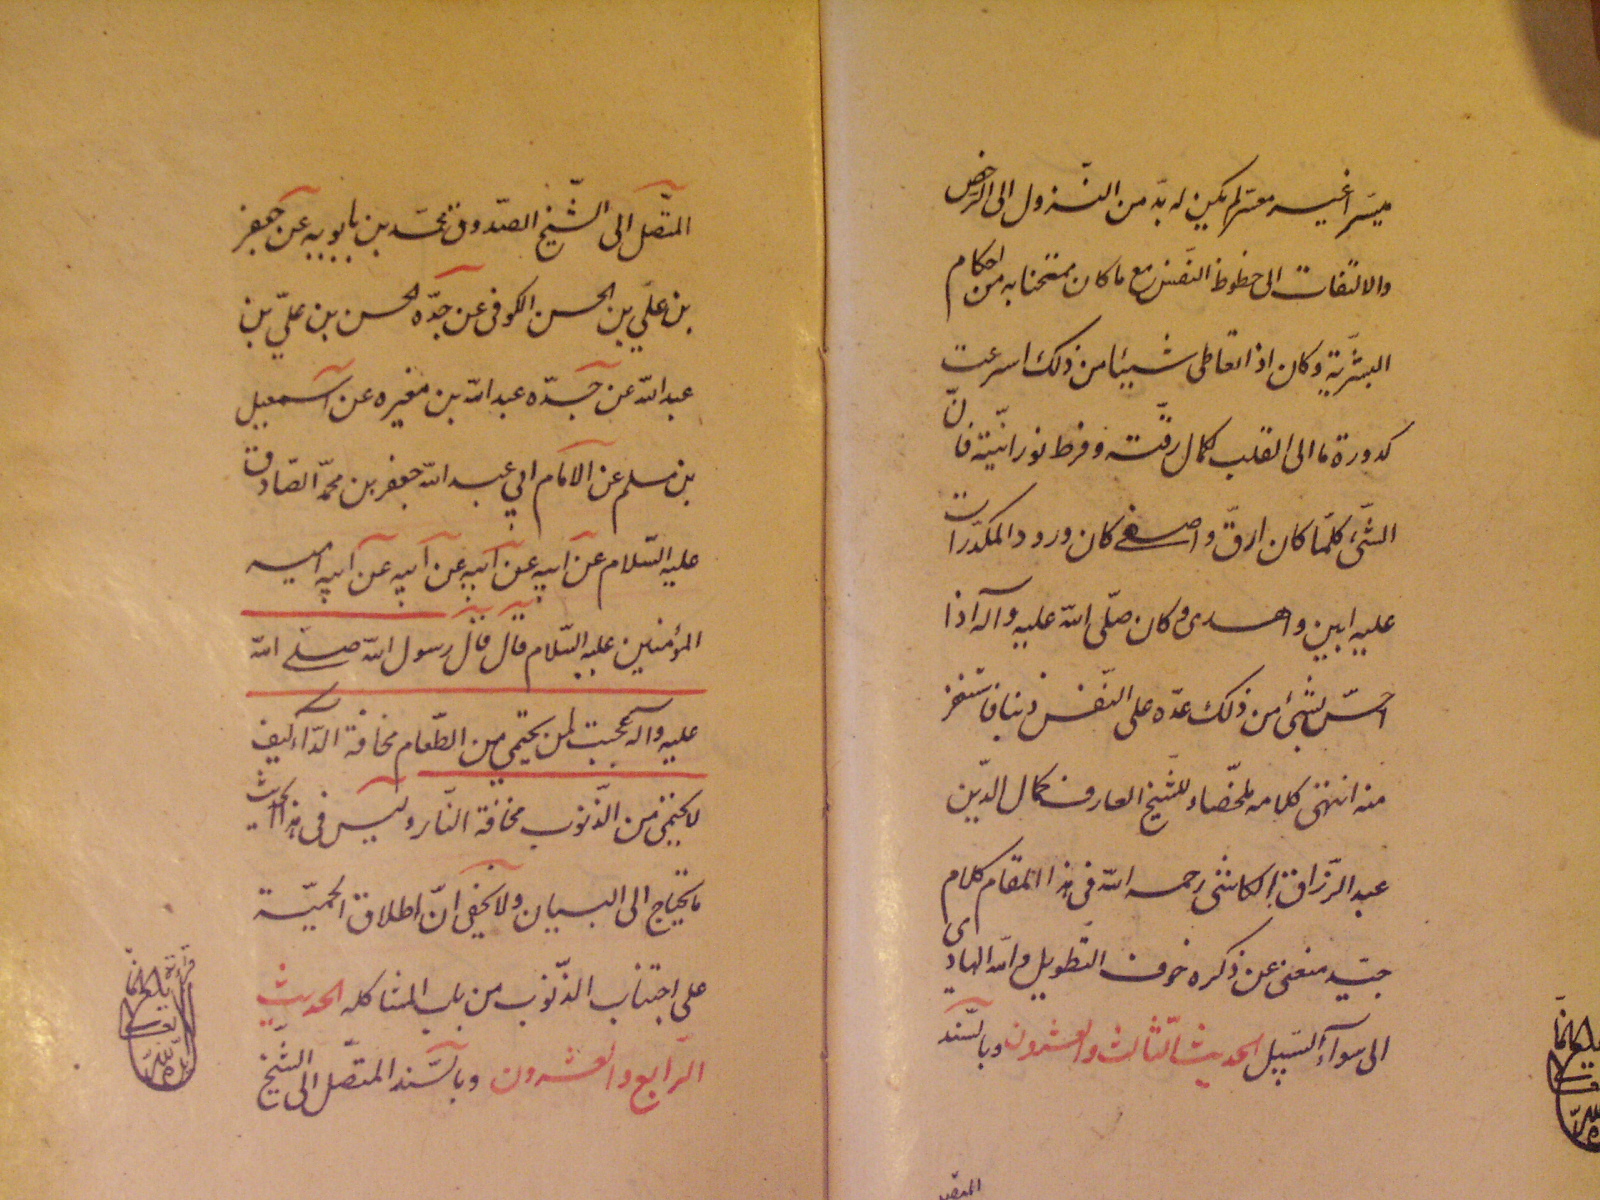 ميسرا غيره معسرا لم يكن له بد من النزول الى الرخص
والالتفات الى حظوظ النفس مع ما كان ممتحنا به من احكام
البشرّية وكان اذا تعاطى شيئا من ذلك اسرعت
كدورة ما الى القلب لكمال رقّته وفرط نورانيّته فانّ
الشّئ كلّما كان ارقّ واصفى كان ورود المكدّرات
عليه ابين واهدى وكان صلّى الله عليه وآله اذا
احسّ بشئ من ذلك عدّه على النّفس ذنبا فاستغفر
منه انتهى كلامه ملخّصا وللشّيخ العارف كمال الدّين
عبد الرّزاق الكاشى رحمه الله فى هذا المقام كلام
جيّد منعنى عن ذكره خوف التّطويل والله الهادى
الى سوآء السّبيل الحديث الثّالث والعشرون وبالسّند
المتّصل
المتّصل الى الشّيخ الصّدوق محمّد بن بابويه عن جعفر
بن علّي بن الحسن الكوفى عن جدّه الحسن بن علّي بن
عبد الله عن جدّه عبد الله بن مغيره عن اسمعيل
بن مسلم عن الامام ابي عبد الله جعفر بن محمّد الصّادق
عليه السّلام عن ابيه عن آبيه عن آبيه عن آبيه امير
المؤمنين عليه السّلام قال قال رسول الله صلّى الله
عليه وآله عجبت لمن يحتمي من الطّعام مخافة الدّآء كيف
لا يحتمي من الذّنوب مخافة النّار وليس فى هذا الحديث
ما يحتاج الى البيان ولا يخفى انّ اطلاق الحميّة
على اجتناب الذّنوب من باب المشاكله الحديث
الرّابع والعشرون وبالسّند المتّصل الى الشّيخ